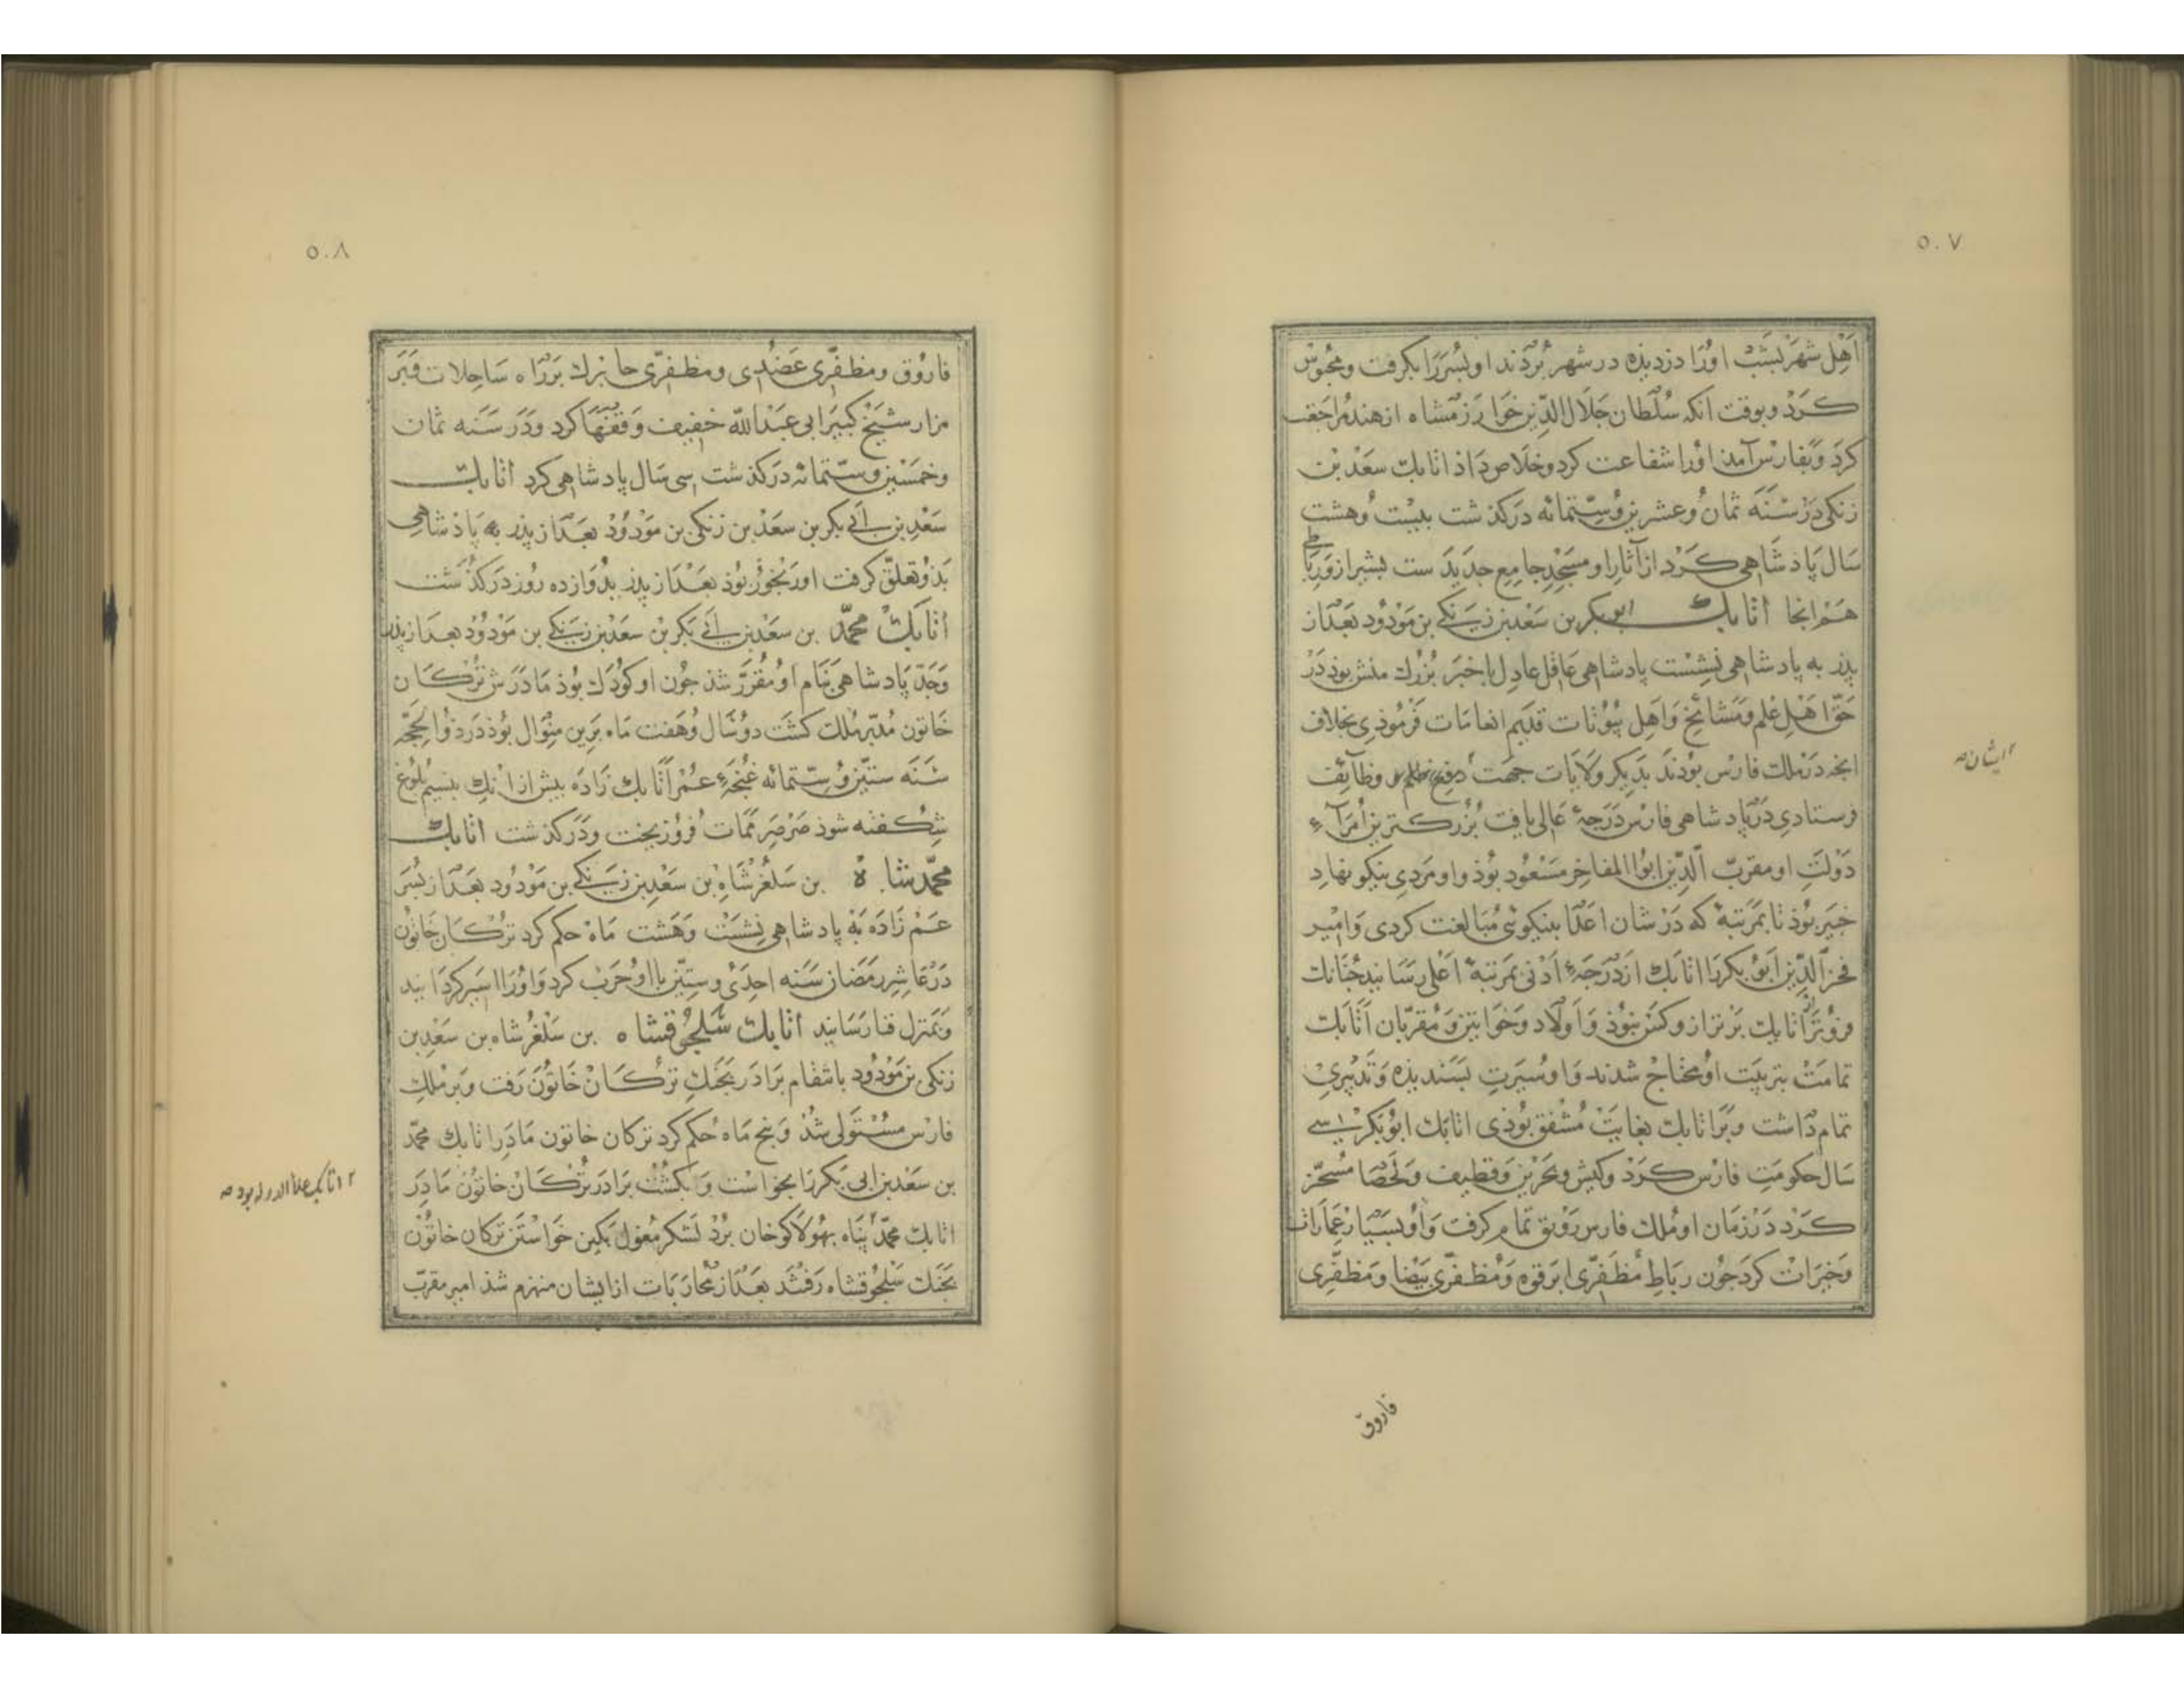 ٥٠٧
اهل شهر بشب اورا دزدیذه در شهر بردند او پسررا بکرفت ومحبوس
کرد وبوقت انکه سلطان جلال الدین خوارزمشاه از هند مراجعت
کرد وبفارس آمد اورا شفاعت کرد وخلاص داذ اتابک سعد بن
زنکی در سنه ثمان وعشرین وستمائه درکذشت بیست وهشت
سال پاذشاهی کرد از آثار او مسجد جامع جدیدست بشیراز ورباطی
هم انجا اتابک ابی بکر بن سعد بن زنکی بن مودود بعد از
پذر به پادشاهی نشست پادشاهی عاقل عادل باخبر بزرك منش بوذ در
حق اهل علم ومشائخ واهل بیوتات قدیم انعامات فرموذی بخلاف
انجه در ملك فارس بودند بدیکر ولایات جهت وظائف
فرستادی در پادشاهی فارس درجهٔ عالی یافت بزرکترین امرآء
دولت او مقرب الدین ابوالمفاخر مسعود بوذ واو مردی نیکو نهاد
خیر بوذ تا بمرتبهٔ که در شان اعدا بنیکوئی مبالغت کردی وامیر
فخر الدین ابو بکررا اتابك از درجهء ادنی بمرتبهٔ اعلی رسانید جنانك
فروتر اتابك برتر ازو کس نبوذ واولاد وخواتین ومقربان اتابك
تمامت بتربیت او محتاج شدند واو سیرت پسندیذه وتدبیری
تمام داشت وبر اتابك بغایت مشفق بوذی اتابك ابو بکر سی
سال حکومت فارس کرد وکیش وبحرین وقطیف ولحصا مسخر
کرد در زمان او ملك فارس رونق تمام کرفت واو بسیار عمارات
وخیرات کرد جون رباط مظفری ابرقوه ومظفری بیضا ومظفری
ایشان
فاروق
٥٠٨
فاروق ومظفری عضدی ومظفری بزراه ساحلات وبر
مزار شیخ کبیر ابی عبدالله خفیف وقفها کرد ودر سنه ثمان
وخمسین وستمائه درکذشت سی سال پادشاهی کرد اتابك
سعد بن ابی بکر بن سعد بن زنکی بن مودود بعد از پذر به پاذشاهی
بذو تعلق کرفت او رنجور بوذ بعد از پذر بدوازده روز درکذشت
اتابك محمد بن سعد بن ابی بکر بن سعد بن زنکی بن مودود بعد از پذر
وجد پادشاهی بنام او مقرر شذ جون او کودك بوذ مادرش ترکان
خاتون مدبر ملك کشت دو سال وهفت ماه برین منوال بوذ در ذوالحجه
سنه ستین وستمائه غنجهء عمر اتابك زاده بیش از انك بنسیم بلوغ
شکفته شوذ صرصر ممات فروریخت ودرکذشت اتابك
محمدشاه بن سلغرشاه بن سعد بن زنکی بن مودود بعد از پسر
عم زاده به پادشاهی نشست وهشت ماه حکم کرد ترکان خاتون
در عاشر رمضان سنه احدی وستین با او حرب کرد واورا اسیر کردانید
وبمنزل فنا رسانید اتابك سلجوقشاه بن سلغرشاه بن سعد بن
زنکی بن مودود بانتقام برادر بجنك ترکان خاتون رفت وبر ملك
فارس مستولی شذ وپنج ماه حکم کرد ترکان خاتون مادر اتابك محمد
بن سعد بن ابی بکررا بخواست وبکشت برادر ترکان خاتون مادر
اتابك محمد پناه بهولاکو خان برد لشکر مغول بکین خواستن ترکان خاتون
بجنك سلجوقشاه رفتند بعد از محاربات ازایشان منهزم شذ امیر مقرب
اتابك علاالدوله بود